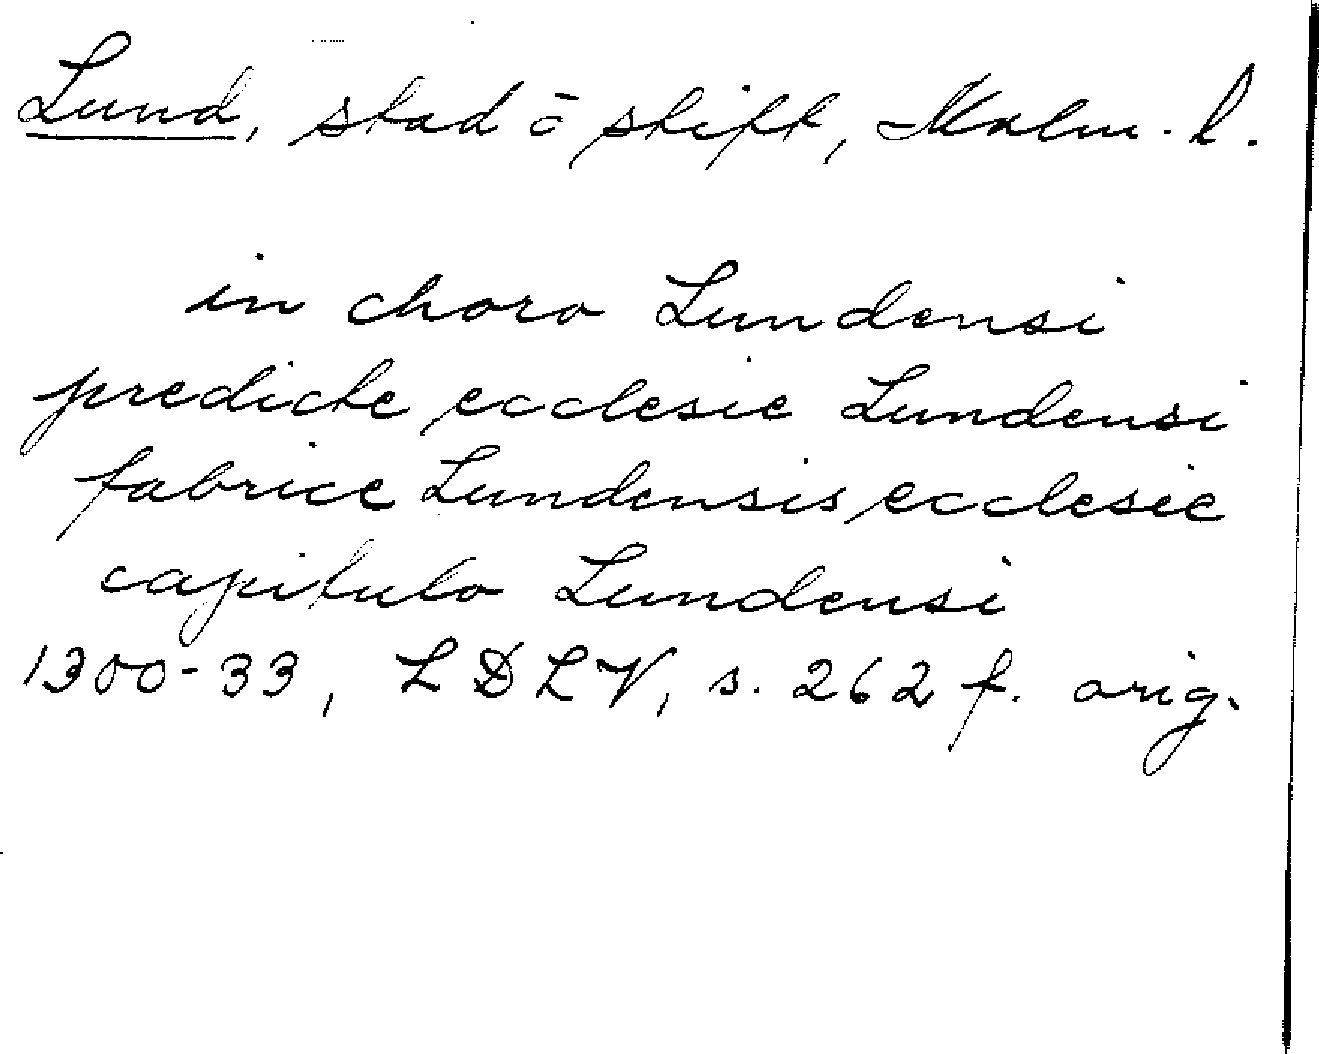 Lund, stad o stift, Malm. l.
in choro Lundensi
predicte ecclesie Lundensi
fabrice Lundensis ecclesie
capitulo Lundensi
1300-33, LDLV, s. 262 f. orig.